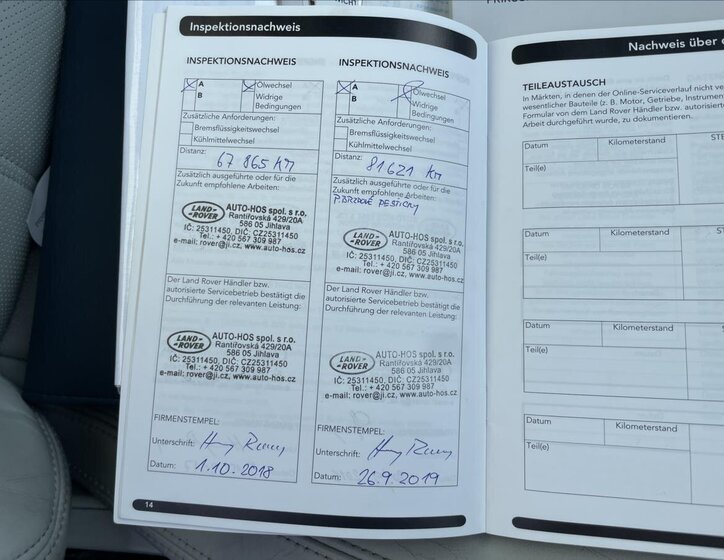 Inspektionsnachweis
INSPEKTIONSNACHWEIS
A
B
Ölwechsel
Widrige
Bedingungen
Zusätzliche Anforderungen:
Bremsflüssigkeitswechsel
Kühlmittelwechsel
Distanz:
67 865 KM
Zusätzlich ausgeführte oder für die
Zukunft empfohlene Arbeiten:
LAND ROVER
AUTO-HOS spol. s r.o.
Rantířovská 429/20A
586 05 Jihlava
IČ: 25311450, DIČ: CZ25311450
Tel.: + 420 567 309 987
e-mail: rover@ji.cz, www.auto-hos.cz
Der Land Rover Händler bzw.
autorisierte Servicebetrieb bestätigt die
Durchführung der relevanten Leistung:
LAND ROVER
AUTO-HOS spol. s r.o.
Rantířovská 429/20A
586 05 Jihlava
IČ: 25311450, DIČ: CZ25311450
Tel.: + 420 567 309 987
e-mail: rover@ji.cz, www.auto-hos.cz
FIRMENSTEMPEL:
Unterschrift:
Datum: 1.10.2018
14
INSPEKTIONSNACHWEIS
A
B
Ölwechsel
Widrige
Bedingungen
Zusätzliche Anforderungen:
Bremsflüssigkeitswechsel
Kühlmittelwechsel
Distanz:
81621 KM
Zusätzlich ausgeführte oder für die
Zukunft empfohlene Arbeiten:
P. BRZDOVÉ DESTIČKY
LAND ROVER
AUTO-HOS spol. s r.o.
Rantířovská 429/20A
586 05 Jihlava
IČ: 25311450, DIČ: CZ25311450
Tel.: + 420 567 309 987
e-mail: rover@ji.cz, www.auto-hos.cz
Der Land Rover Händler bzw.
autorisierte Servicebetrieb bestätigt die
Durchführung der relevanten Leistung:
LAND ROVER
AUTO-HOS spol. s r.o.
Rantířovská 429/20A
586 05 Jihlava
IČ: 25311450, DIČ: CZ25311450
Tel.: + 420 567 309 987
e-mail: rover@ji.cz, www.auto-hos.cz
FIRMENSTEMPEL:
Unterschrift:
Datum: 26.9.2019
Nachweis über
TEILEAUSTAUSCH
In Märkten, in denen der Online-Serviceverlauf nicht
wesentlicher Bauteile (z. B. Motor, Getriebe,
Formular von dem Land Rover Händler bzw.
Arbeit durchgeführt wurde, zu dokumentieren.
Datum
Kilometerstand
Teil(e)
Datum
Kilometerstand
Teil(e)
Datum
Kilometerstand
Teil(e)
Datum
Kilometerstand
Teil(e)